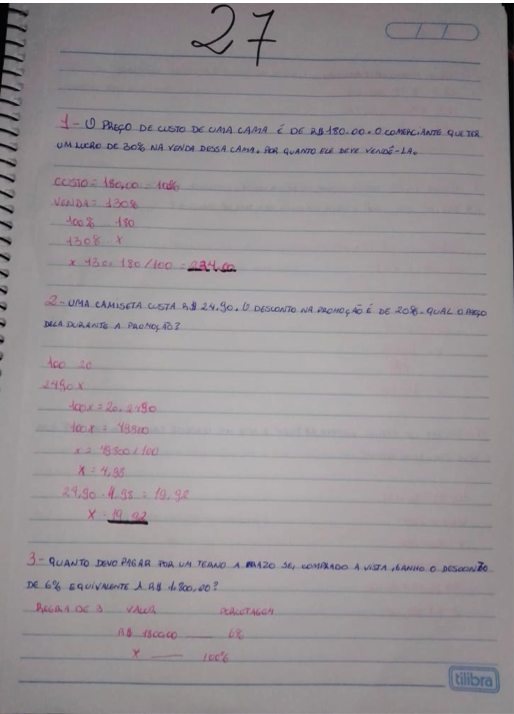 27
1- O PREÇO DE CUSTO DE UMA CAMA É DE R$180.00. O COMERCIANTE QUE TER
UM LUCRO DE 30% NA VENDA DESSA CAMA. POR QUANTO ELE DEVE VENDÊ-LA.
CUSTO = 180,00 100%
VENDA = 130%
100% 180
130% x
x 130. 180/100 = 234.00
2- UMA CAMISETA CUSTA R$ 24,90. O DESCONTO NA PROMOÇÃO É DE 20%. QUAL O PREÇO
DELA DURANTE A PROMOÇÃO?
100 20
2490 x
100x = 20. 2490
100x = 49800
x = 49800/100
x = 4,98
24,90 - 4,98 = 19,92
x = 19,92
3- QUANTO DEVO PAGAR POR UM TERNO A PRAZO SE, COMPRADO A VISTA, GANHO O DESCONTO
DE 6% EQUIVALENTE A R$ 1.800,00?
REGRA DE 3 VALOR PORCETAGEM
R$ 1800.00 6%
x 100%
tilibra